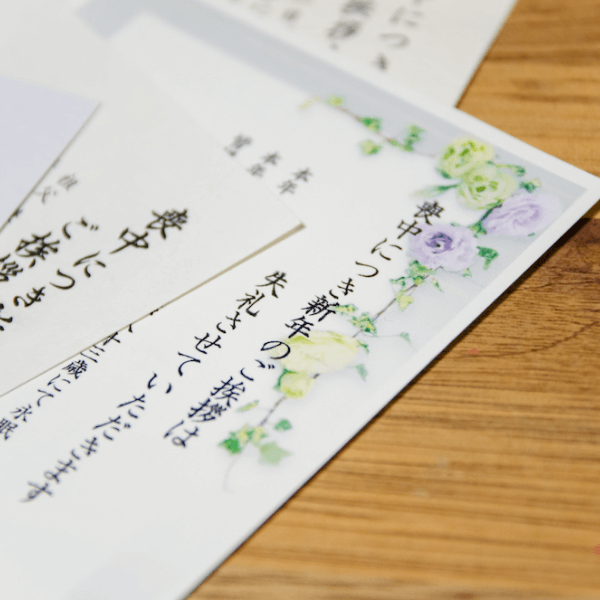 喪中につき新年のご挨拶は
失礼させていただきます
本年
本年
十三歳にて永眠
喪中につき
ご挨拶
祖父
につき